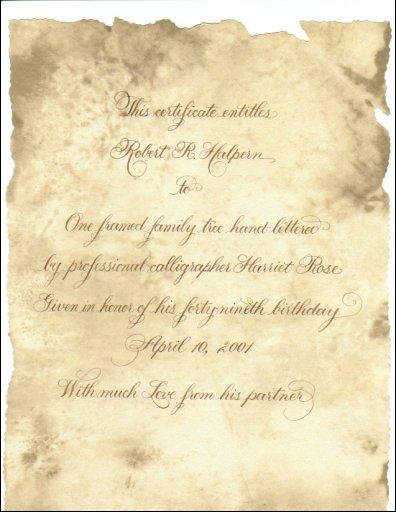 This certificate entitles
Robert R. Halpern
to
One framed family tree hand-lettered
by professional calligrapher Harriet Rose
Given in honor of his forty-nineth birthday
April 10, 2001
With much Love from his partner